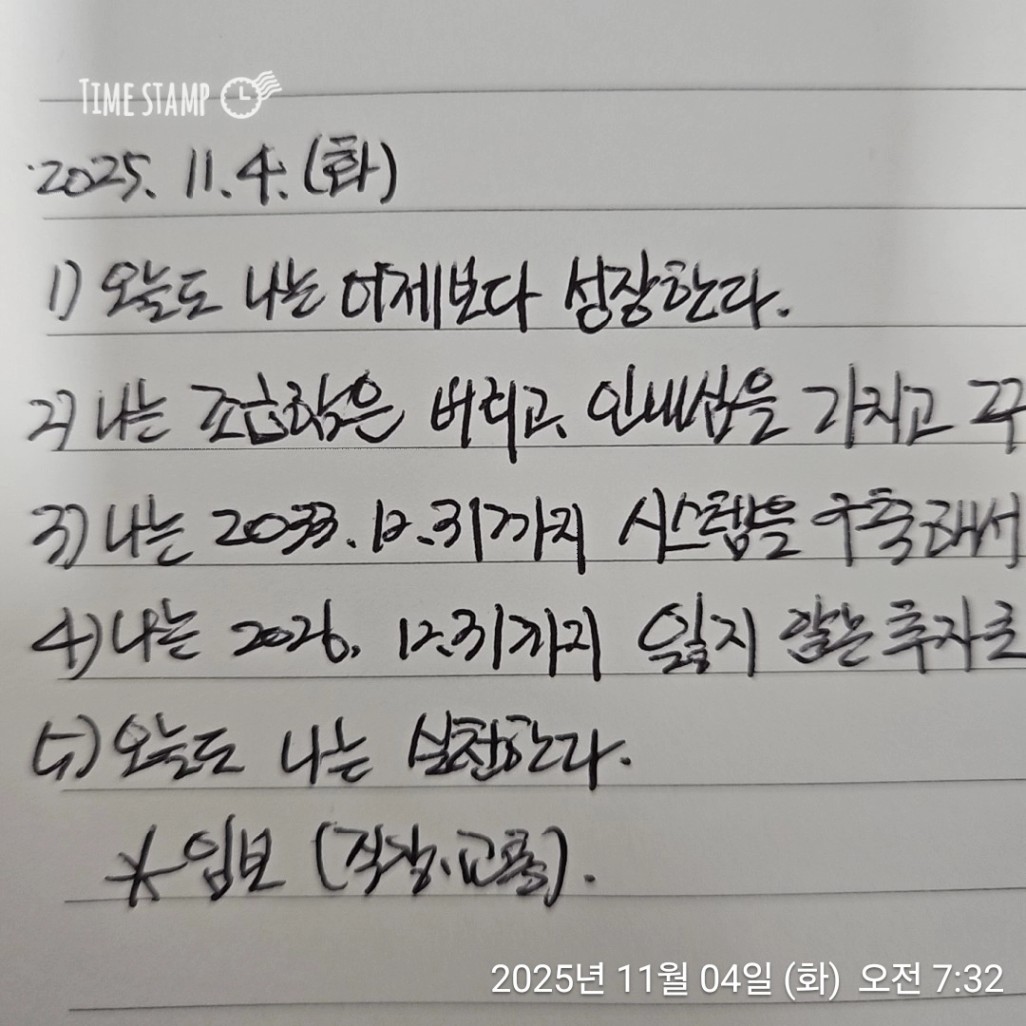 TIME STAMP
2025. 11. 4. (화)
1) 오늘도 나는 어제보다 성장한다.
2) 나는 조급함은 버리고, 인내심을 가지고 꾸
3) 나는 2033. 12. 31까지 시스템을 구축해서
4) 나는 2026. 12. 31까지 잃지 않는 투자로
5) 오늘도 나는 실천한다.
* 임보 (직장.
2025년 11월 04일 (화) 오전 7:32